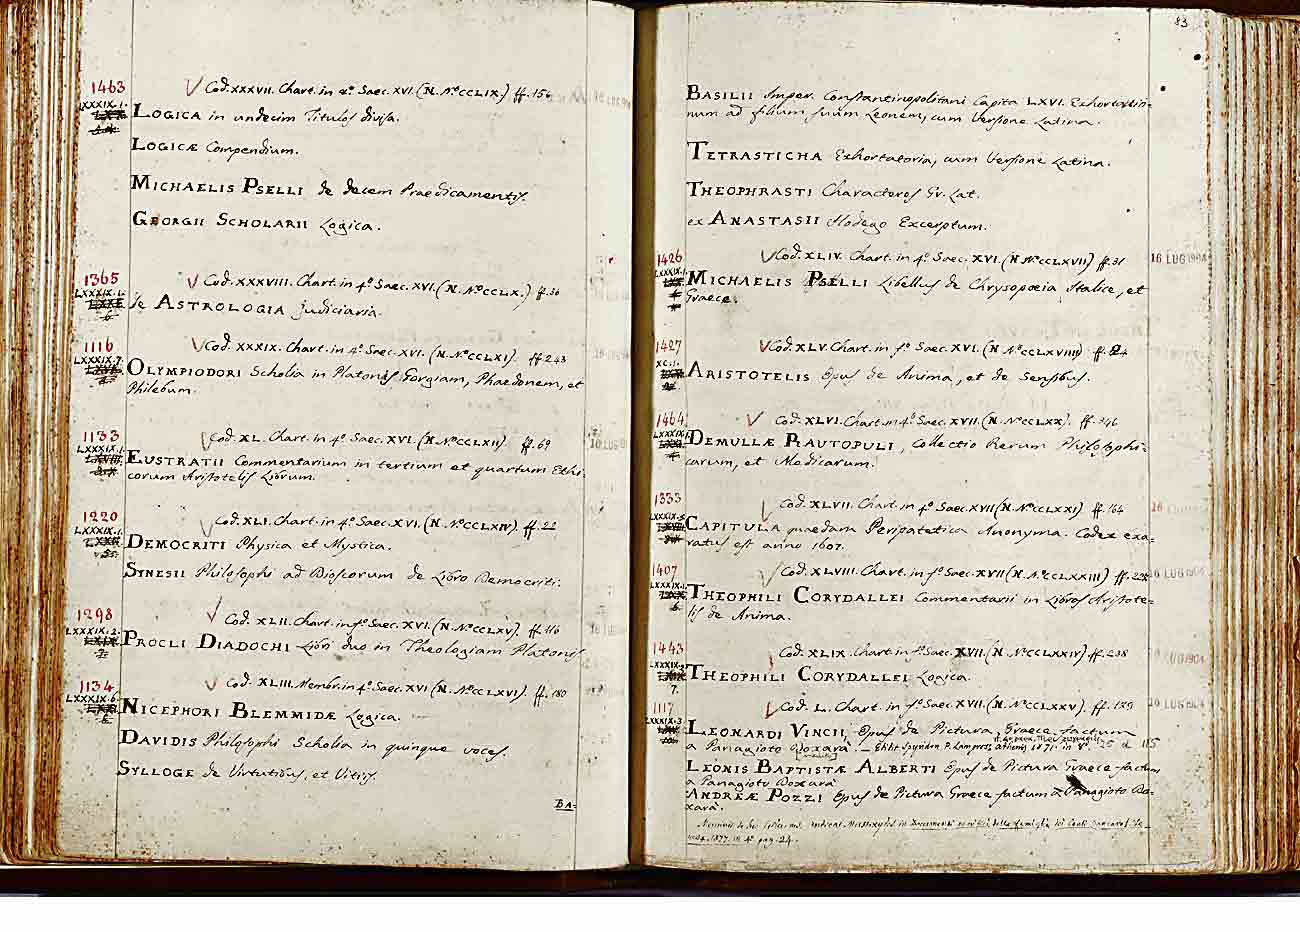 1463
Cod. XXXVII. Chart. in 4.º Saec. XVI. (N. Nº CCLIX.) ff. 156
LXXXIX. 1.
LOGICA in undecim Titulos divisa.
LOGICÆ Compendium.
MICHAELIS PSELLI de decem Praedicamentis.
GEORGII SCHOLARII Logica.
1365
Cod. XXXVIII. Chart. in 4.º Saec. XVI. (N. Nº CCLX.) ff. 36
LXXXIX.
de ASTROLOGIA judiciaria.
1116
Cod. XXXIX. Chart. in 4.º Saec. XVI. (N. Nº CCLXI). ff. 243
LXXXIX. 7.
OLYMPIODORI Scholia in Platonis Gorgiam, Phaedonem, et
Philebum.
1133
Cod. XL. Chart. in 4.º Saec. XVI. (N. Nº CCLXII) ff. 69
LXXXIX. 1.
EUSTRATII Commentarium in tertium et quartum Ethi-
corum Aristotelis Librum.
1220
Cod. XLI. Chart. in 4.º Saec. XVI. (N. Nº CCLXIV). ff. 22
LXXXIX. 1.
DEMOCRITI Physica et Mystica.
SYNESII Philosophi ad Dioscorum de Libro Democriti.
1298
Cod. XLII. Chart. in fº Saec. XVI. (N. Nº CCLXV). ff. 116
LXXXIX. 2.
PROCLI DIADOCHI Libri duo in Theologiam Platonis
1134
Cod. XLIII. Membr. in 4.º Saec. XVI (N. Nº CCLXVI). ff. 180
LXXXIX. 6.
NICEPHORI BLEMMIDÆ Logica.
DAVIDIS Philosophi Scholia in quinque voces.
SYLLOGE de Virtutibus, et Vitiis.
BA-
83
BASILII Imper. Constantinopolitani Capita LXVI. Exhortatio-
num ad filium suum Leonem, cum Versione Latina.
TETRASTICHA Exhortatoria, cum Versione Latina.
THEOPHRASTI Characteres Gr. Lat.
ex ANASTASII Hodego Excerptum.
1426
Cod. XLIV. Chart. in 4.º Saec. XVI. (N Nº CCLXVII) ff. 31
16 LUG 1904
LXXXIX.
MICHAELIS PSELLI Libellus de Chrysopoeia Italice, et
Graece.
1427
Cod. XLV. Chart. in fº Saec. XVI. (N Nº CCLXVIII) ff. 24
XC.
ARISTOTELIS Opus de Anima, et de Sensibus.
1464
Cod. XLVI. Chart. in 4.º Saec. XVII. (N Nº CCLXX). ff. 346
LXXXIX.
DEMULLÆ RAUTOPULI, Collectio Rerum Philosophi-
carum, et Medicarum.
1333
Cod. XLVII. Chart. in 4.º Saec. XVII (N Nº CCLXXI) ff. 164
16
LXXXIX.
CAPITULA quaedam Peripatetica Anonyma. Codex exa-
ratus est anno 1607.
1407
Cod. XLVIII. Chart. in fº Saec. XVII (N. Nº CCLXXIII) ff.
LUG 1904
LXXXIX.
THEOPHILI CORYDALLEI Commentarii in Libros Aristote-
lis de Anima.
1443
Cod. XLIX. Chart. in fº Saec. XVII. (N. Nº CCLXXIV) ff. 238
LUG 1904
LXXXIX.
7.
THEOPHILI CORYDALLEI Logica.
1117
Cod. L. Chart. in fº Saec. XVII. (N. Nº CCLXXV). ff. 129
LUG 1904
LXXXIX. 3.
LEONARDI VINCII, Opus de Pictura, Graece factum
a Panagioto Doxarà. — Edidit Spyridon P. Lampros, Athenis, 1871. in 8º.
LEONIS BAPTISTÆ ALBERTI Opus de Pictura Graece factum
a Panagioto Doxarà
ANDREÆ POZZI Opus de Pictura Graece factum a Panagioto Do-
xarà.
1877. in 4º pag. 24.